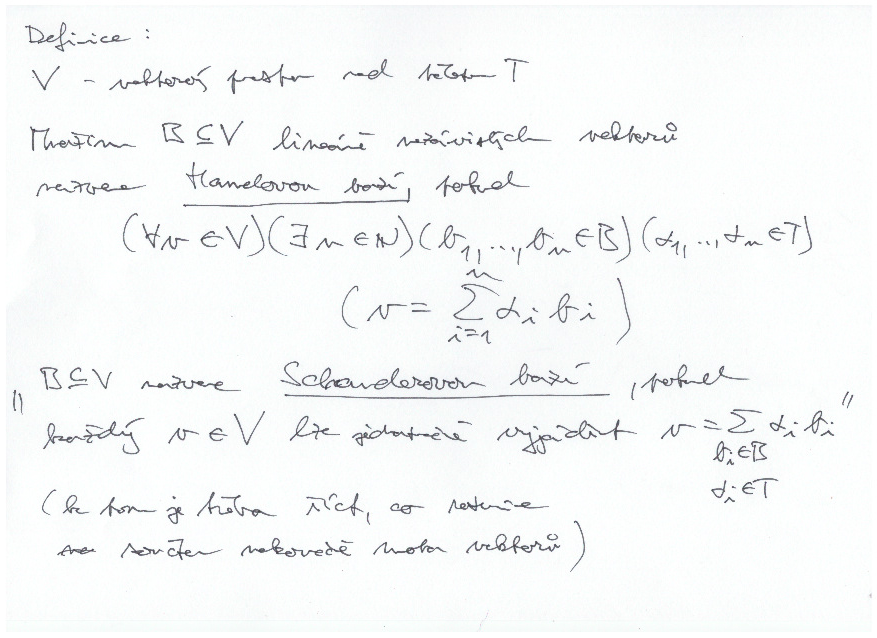 Definice :
V - vektorový prostor nad tělesem T
Množinu B ⊆ V lineárně nezávislých vektorů
nazveme Hamelovou bazí, pokud
(∀v ∈ V)(∃ n ∈ N)(b₁,...,bₙ ∈ B)(α₁,..,αₙ ∈ T)
(v = ∑ᵢ₌₁ⁿ αᵢ bᵢ)
"B ⊆ V nazveme Schauderovou bazí, pokud
každý v ∈ V lze jednoznačně vyjádřit v = ∑ αᵢ bᵢ"
bᵢ ∈ B
αᵢ ∈ T
(k tomu je třeba říct, co
součtem nekonečně mnoha vektorů)